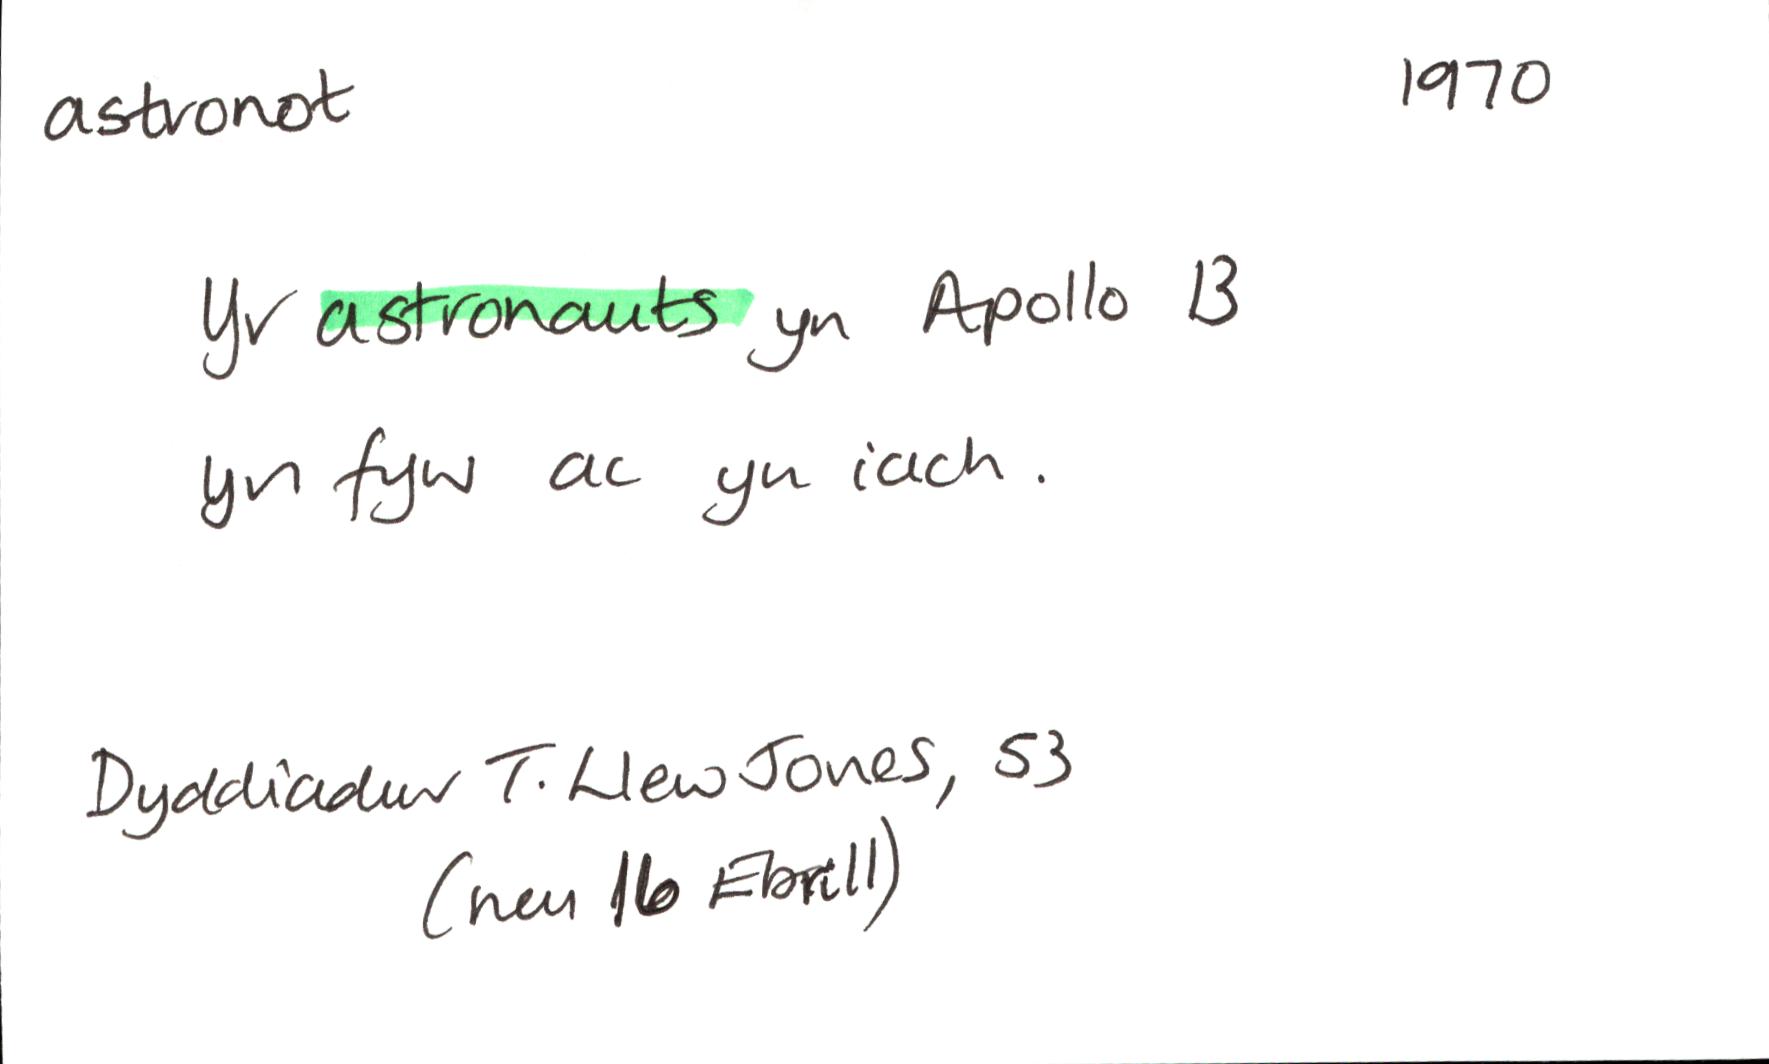 astronot 1970
Yr astronauts yn Apollo 13
yn fyw ac yn iach.
Dyddiadur T. Llew Jones, 53
(neu 16 Ebrill)